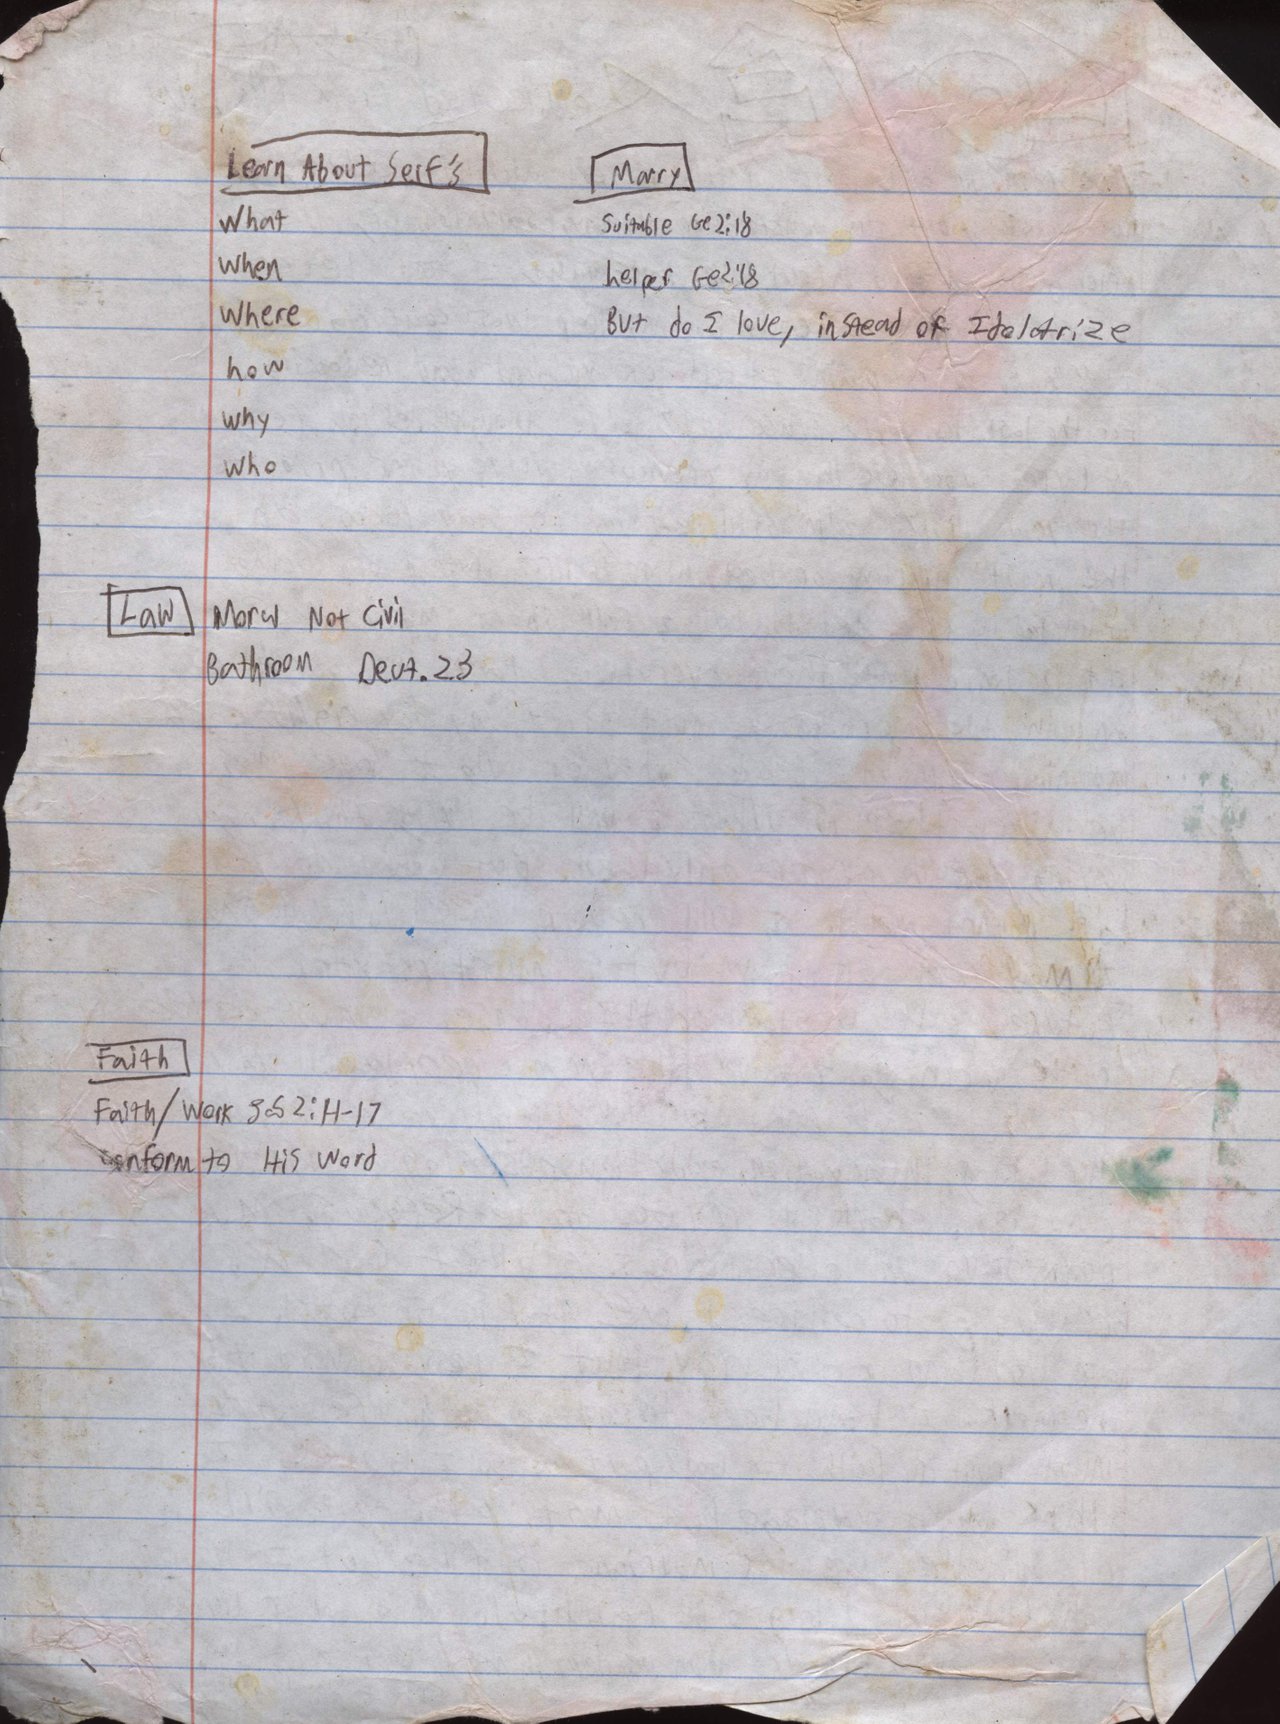 Learn About Serf's
What
When
Where
how
why
who
Marry
Suitable Ge2:18
helper Ge2:18
But do I love, instead of Idolatrize
Law Moral Not Civil
Bathroom Deut. 23
Faith
Faith/Work Jas 2:14-17
conform to His Word